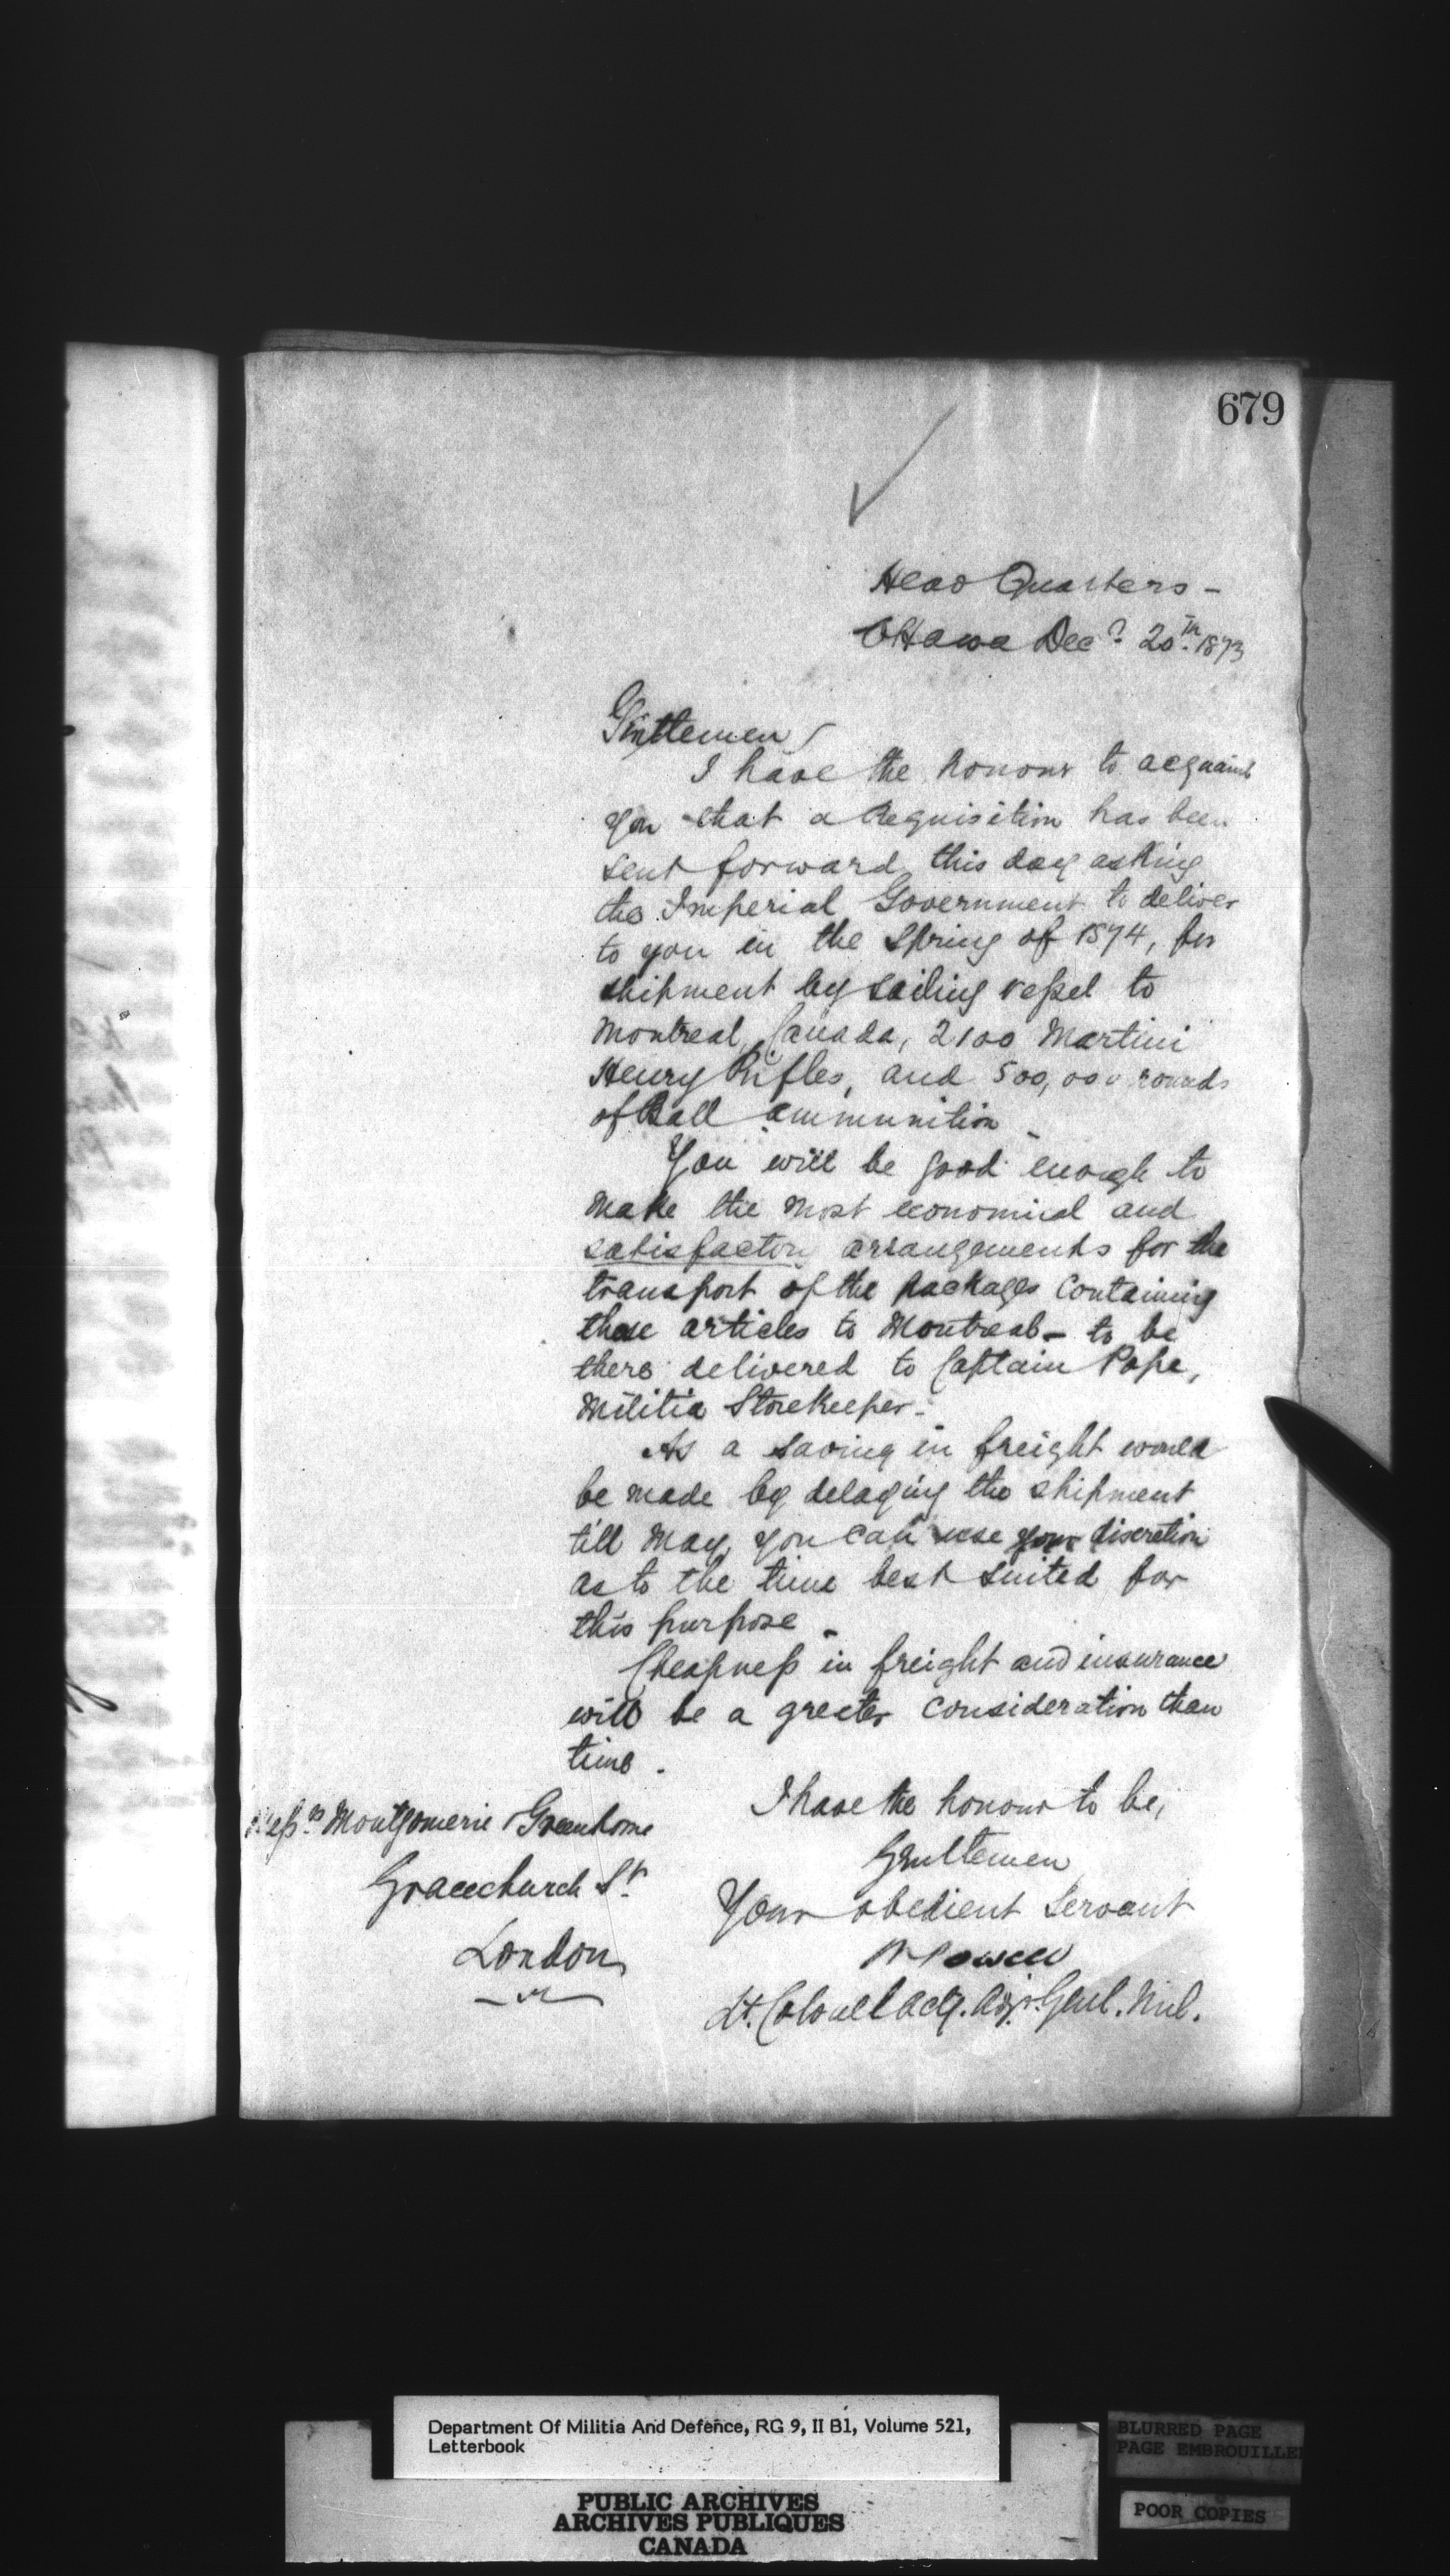 679
Head Quarters -
Ottawa Decr. 20th. 1873
Gentlemen
I have the honour to acquaint
you that a Requisition has been
sent forward this day asking
the Imperial Government to deliver
to you in the Spring of 1874, for
shipment by sailing vessel to
Montreal, Canada, 2100 Martini
Henry Rifles, and 500,000 rounds
of Ball ammunition -
You will be good enough to
make the most economical and
satisfactory arrangements for the
transport of the packages containing
these articles to Montreal - to be
there delivered to Captain Pope,
Militia Storekeeper -
As a saving in freight would
be made by delaying the shipment
till May, you can use your discretion
as to the time best suited for
this purpose -
Cheapness in freight and insurance
will be a greater consideration than
time.
I have the honour to be,
Gentlemen
Your obedient Servant
W Powell
Lt. Colonel Actg. Adjt. Genl. Mil.
Messrs Montgomerie Greenhorne
Gracechurch St.
London
Department Of Militia And Defence, RG 9, II B1, Volume 521,
Letterbook
PUBLIC ARCHIVES
ARCHIVES PUBLIQUES
CANADA
BLURRED PAGE
PAGE EMBROUILLEE
POOR COPIES